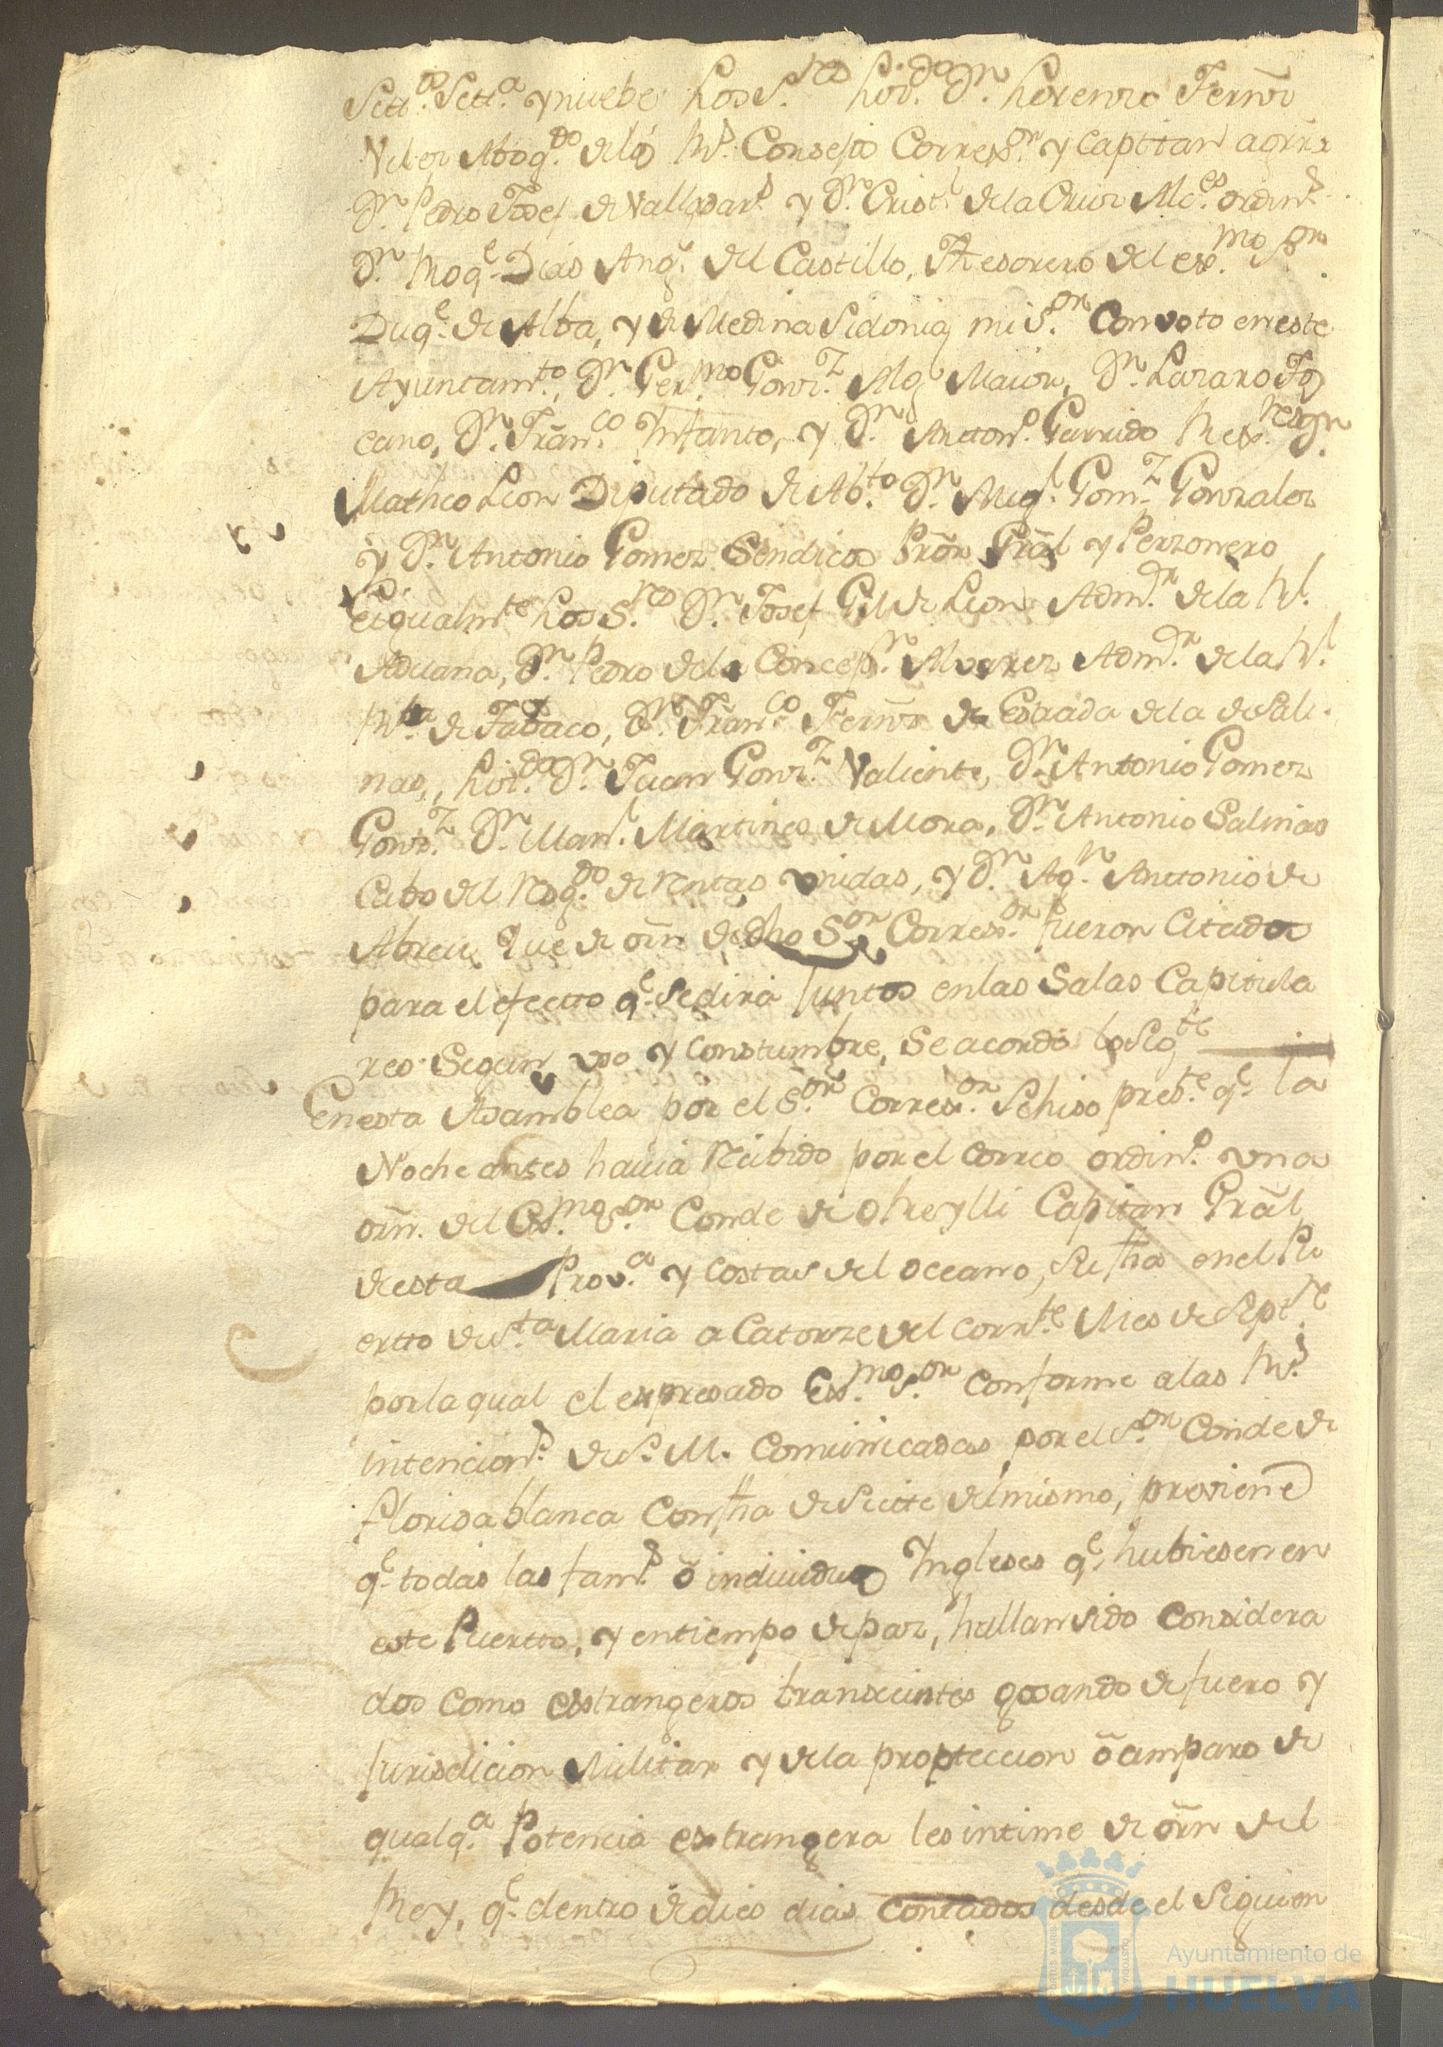 Sett.ª Sett.ª y nuebe Los S.res Lic.do Dn. Lorenzo Fernz
Velez Abog.do de los Rs. Consejo Correg.or y Capitan a grra
Dn. Pedro Josef de Vallejo y Dn. Crist.l de la Cruz Alc.es ordin.s
Dn. Roq.e Dias Ang.l del Castillo, Thesorero del ex.mo S.or
Duq.e de Alba, y de Medina Sidonia mi S.or Con voto en este
Ayuntam.to, Dn. Ger.mo Gonz.z Alg.l Maior, Dn. Lazaro Tos
cano, Dn. Fran.co Infante, y Dn. Anton.o Garrido Rex.res Dn.
Matheo Leon Diputado de Ab.to Dn. Mig.l Gom.z Gonzalez
y Dn. Antonio Gomez Sendicos Pror. Gral y Perzonero
E igualm.te Los S.res Dn. Josef Gil de Leon Adm.or de la Rl.
Aduana, Dn. Pedro de la Concep.n Alvarez Adm.or de la Rl.
R.ta de Tabaco, Dn. Fran.co Fernz de Estrada de la de Sali-
nas, Lic.do Dn. Juan Gonz.z Valiente, Dn. Antonio Gomez
Gonz.z Dn. Man.l Martines de Mora, Dn. Antonio Salinas
Cabo del Resg.do de Rentas vnidas, y Dn. Ag.n Anttonio de
Abreu Que de orn de dho S.or Correx.or fueron Citados
para el efectto q.e se dirá Juntos en las Salas Capitula
res Segun vso y Constumbre, Se acordó lo Sig.te
En esta Asamblea por el S.or Correx.or Se hiso pres.te q.e la
Noche antes havia Recibido por el Correo ordin.o vna
orn. del Ex.mo S.or Conde de O Reylli Capitan Gral
de esta Prov.a y Costas del Oceano, Su fha en el Pu
ertto de S.ta Maria a Catorze del corr.te Mes de Sept.re
por la qual el expresado Ex.mo S.or conforme a las Rs.
intencion.s de S. M. Comunicadas por el S.or Conde de
Florida blanca Con fha de Siette del mismo, previene
q.e todas las fam.s ó individuos Ingleses q.e hubiesen en
este Puertto, y en tiempo de paz, hallan sido Considera
dos Como estrangeros transeuntes gosando de fuero y
Jurisdicion Militar y de la proteccion ó amparo de
qualq.a Potencia extrangera les intime de orn del
Rey, q.e dentro de dies dias contados desde el Siguien
Ayuntamiento de
HUELVA